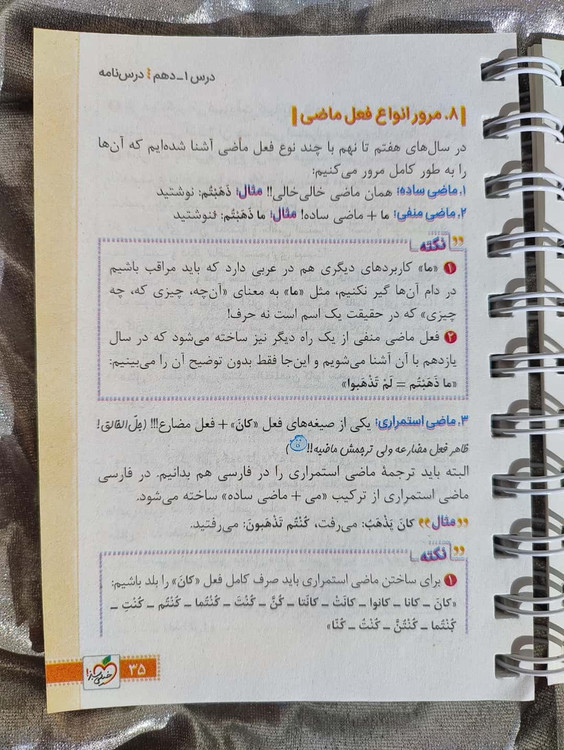 درس ۱ـ دهم ⁞ درس‌نامه
۸. مرور انواع فعل ماضی
در سال‌های هفتم تا نهم با چند نوع فعل ماضی آشنا شده‌ایم که آن‌ها
را به طور کامل مرور می‌کنیم:
۱. ماضی ساده: همان ماضی خالی‌خالی!! مثال: ذَهَبْتُم: نوشتید
۲. ماضی منفی: ما + ماضی ساده! مثال: ما ذَهَبْتُم: ننوشتید
نکته
۱ «ما» کاربردهای دیگری هم در عربی دارد که باید مراقب باشیم
در دام آن‌ها گیر نکنیم، مثل «ما» به معنای «آن‌چه، چیزی که، چه
چیزی» که در حقیقت یک اسم است نه حرف!
۲ فعل ماضی منفی از یک راه دیگر نیز ساخته می‌شود که در سال
یازدهم با آن آشنا می‌شویم و این‌جا فقط بدون توضیح آن را می‌بینیم:
«ما ذَهَبْتُم = لَمْ تَذْهَبوا»
۳. ماضی استمراری: یکی از صیغه‌های فعل «کانَ» + فعل مضارع!!! (جلّ‌الخالق!
ظاهر فعل مضارعه ولی ترجمش ماضیه!!)
البته باید ترجمهٔ ماضی استمراری را در فارسی هم بدانیم. در فارسی
ماضی استمراری از ترکیب «می + ماضی ساده» ساخته می‌شود.
مثال کانَ یَذْهَبُ: می‌رفت، کُنْتُم تَذْهَبونَ: می‌رفتید.
نکته
۱ برای ساختن ماضی استمراری باید صرف کامل فعل «کانَ» را بلد باشیم:
«کانَ ـ کانا ـ کانوا ـ کانَتْ ـ کانَتا ـ کُنَّ ـ کُنْتَ ـ کُنْتُما ـ کُنْتُم ـ کُنْتِ ـ
کُنْتُما ـ کُنْتُنَّ ـ کُنْتُ ـ کُنّا»
خیلی سبز
۳۵